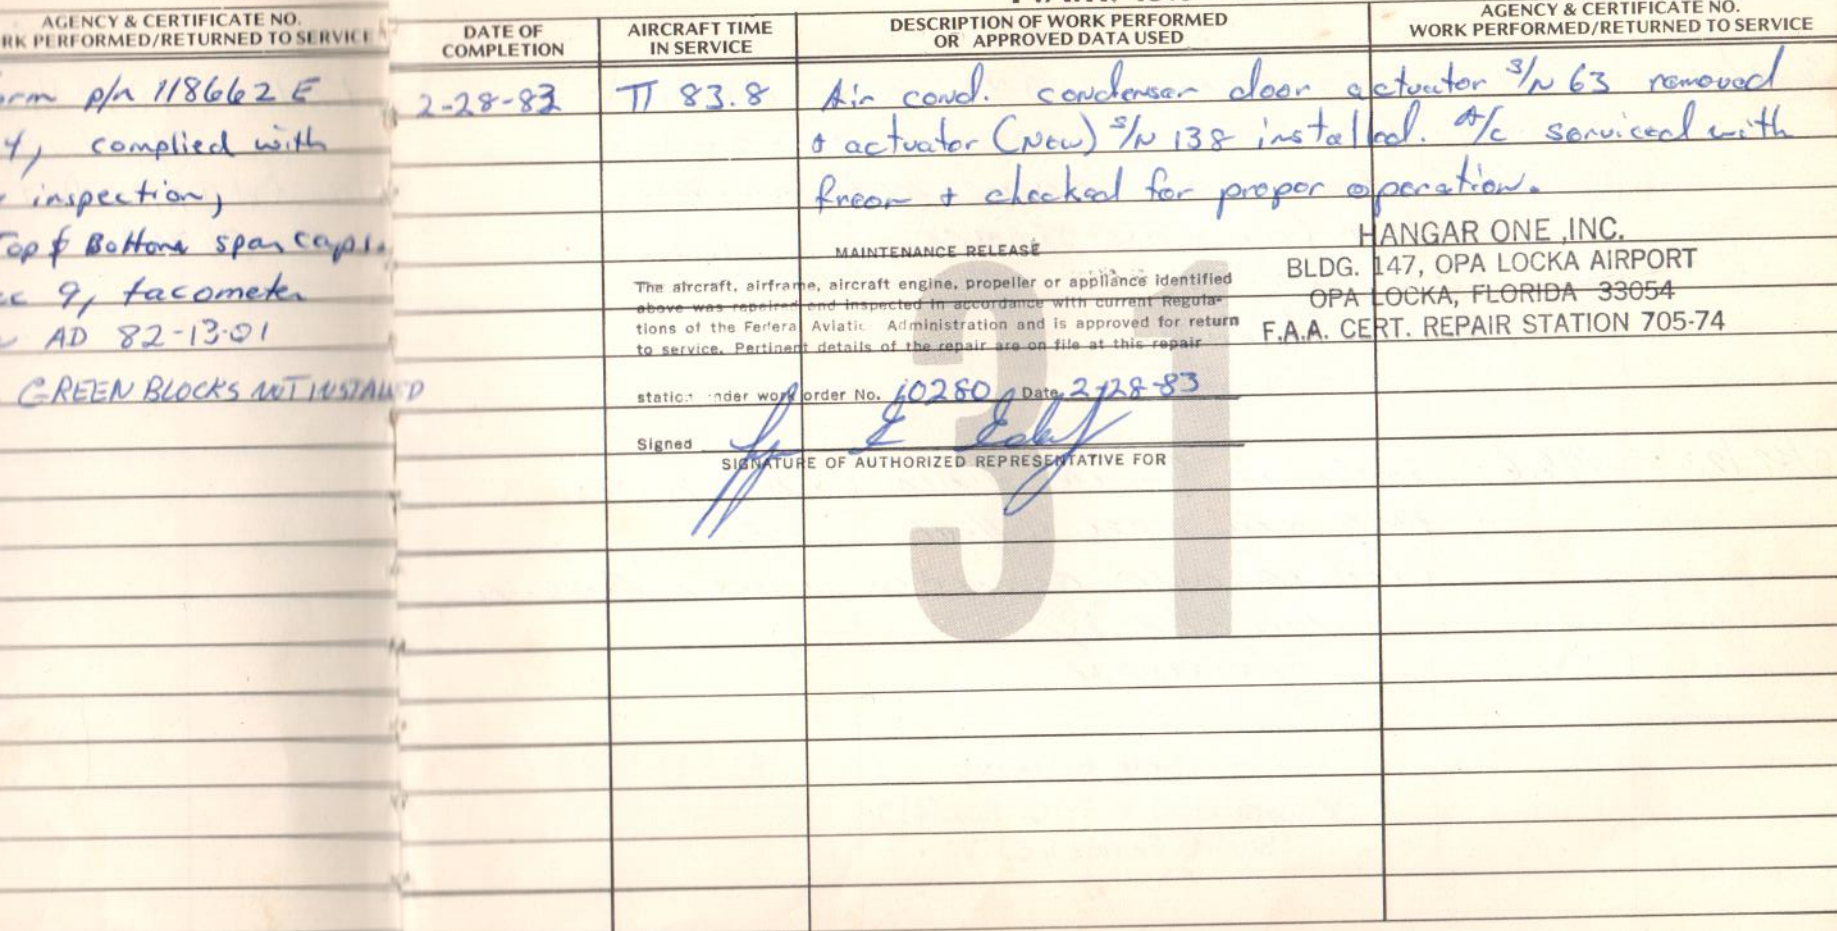 AGENCY & CERTIFICATE NO.
RK PERFORMED/RETURNED TO SERVICE
p/n 118662 E
4, complied with
inspection,
op & Bottom spar caps.
9, tacometer
AD 82-13-01
GREEN BLOCKS NOT INSTALLED
DATE OF
COMPLETION
AIRCRAFT TIME
IN SERVICE
DESCRIPTION OF WORK PERFORMED
OR APPROVED DATA USED
AGENCY & CERTIFICATE NO.
WORK PERFORMED/RETURNED TO SERVICE
2-28-83
TT 83.8
Air cond. condenser door actuator S/N 63 removed
+ actuator (New) S/N 138 installed. A/C serviced with
freon + checked for proper operation.
MAINTENANCE RELEASE
The aircraft, airframe, aircraft engine, propeller or appliance identified
above was repaired and inspected in accordance with current Regula-
tions of the Federal Aviatic Administration and is approved for return
to service. Pertinent details of the repair are on file at this repair
station under work order No. 10280 Date 2-28-83
Signed
SIGNATURE OF AUTHORIZED REPRESENTATIVE FOR
HANGAR ONE, INC.
BLDG. 147, OPA LOCKA AIRPORT
OPA LOCKA, FLORIDA 33054
F.A.A. CERT. REPAIR STATION 705-74
31